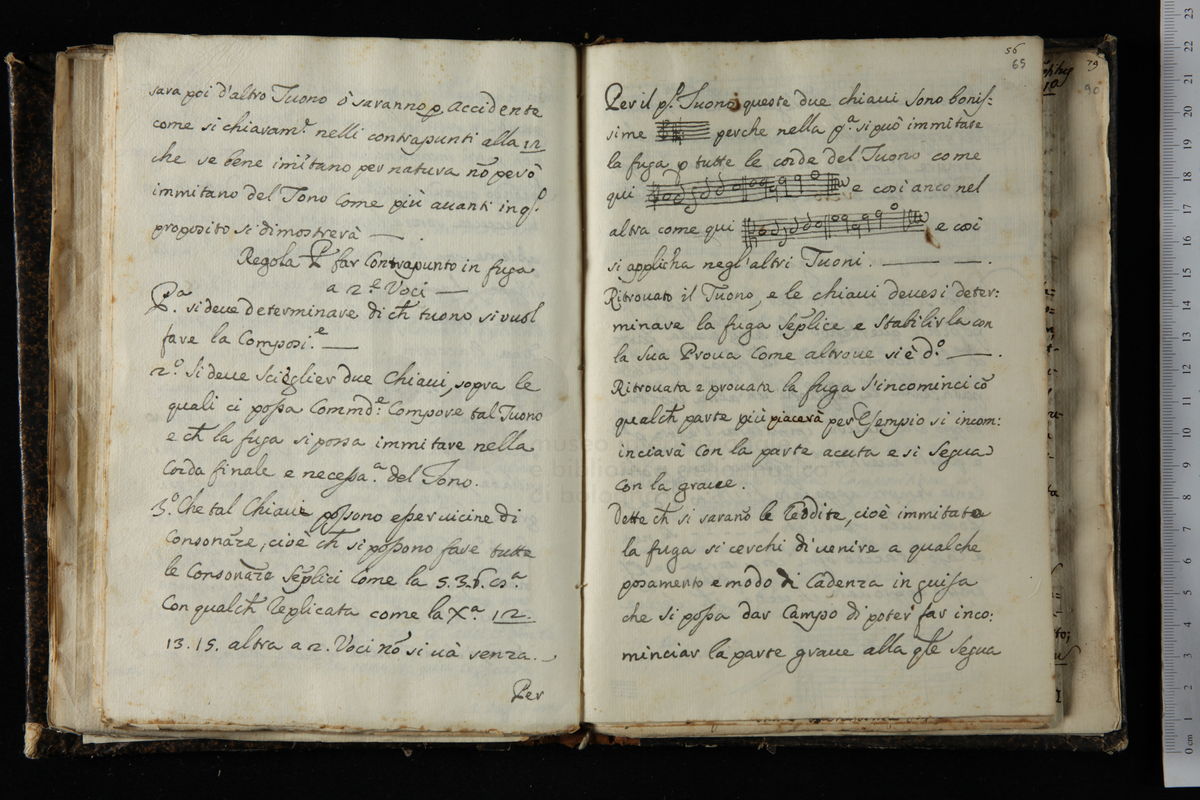 sara poi d'altro Tuono ò saranno p accidente
come si chiaram.e nelli contrapunti alla 12
che se bene imitano per natura nõ però
immitano del Tono Come più auanti in q.o
proposito si dimostrerà —
Regola P far Contrapunto in fuga
a 2.e Voci —
P.a si deue determinare di ch tuono si vuol
fare la Composi.e —
2.o Si deue Scieglier due Chiaui, sopra le
quali ci possa Commd.e Compore tal Tuono
e ch la fuga si possa immitare nella
Corda finale e necessa.a del Tono.
3.o Che tal Chiaui possono esser uicine di
Consonãze, cioè ch si possono fare tutte
le Consonãze Sẽplici Come la 5. 3. 6. cos.a
Con qualch Replicata come la X.a 12.
13. 15. altra a 2. Voci nõ si uà senza.
Per
56
65
Per il p.o Tuono queste due chiaui sono bonis:
sime perche nella p.a si può immitare
la fuga p tutte le corde del Tuono come
qui e così anco nel
altra come qui e così
si applicha negl'altri Tuoni. — — .
Ritrouato il Tuono, e le chiaui deuesi deter:
minare la fuga Sẽplice e Stabilirla con
la sua Proua Come altroue si è d.o — .
Ritrouata e prouata la fuga s'incominci cõ
qualch parte più piacerà per Esempio si incom:
inciarà Con la parte acuta e si Segua
Con la graue.
Dette ch si sarano le Reddite, cioè immitata
la fuga si cerchi di uenire a qualche
posamento e modo di Cadenza in guisa
che si possa dar Campo di poter far inco:
minciar la parte graue alla qle Segua
79
90